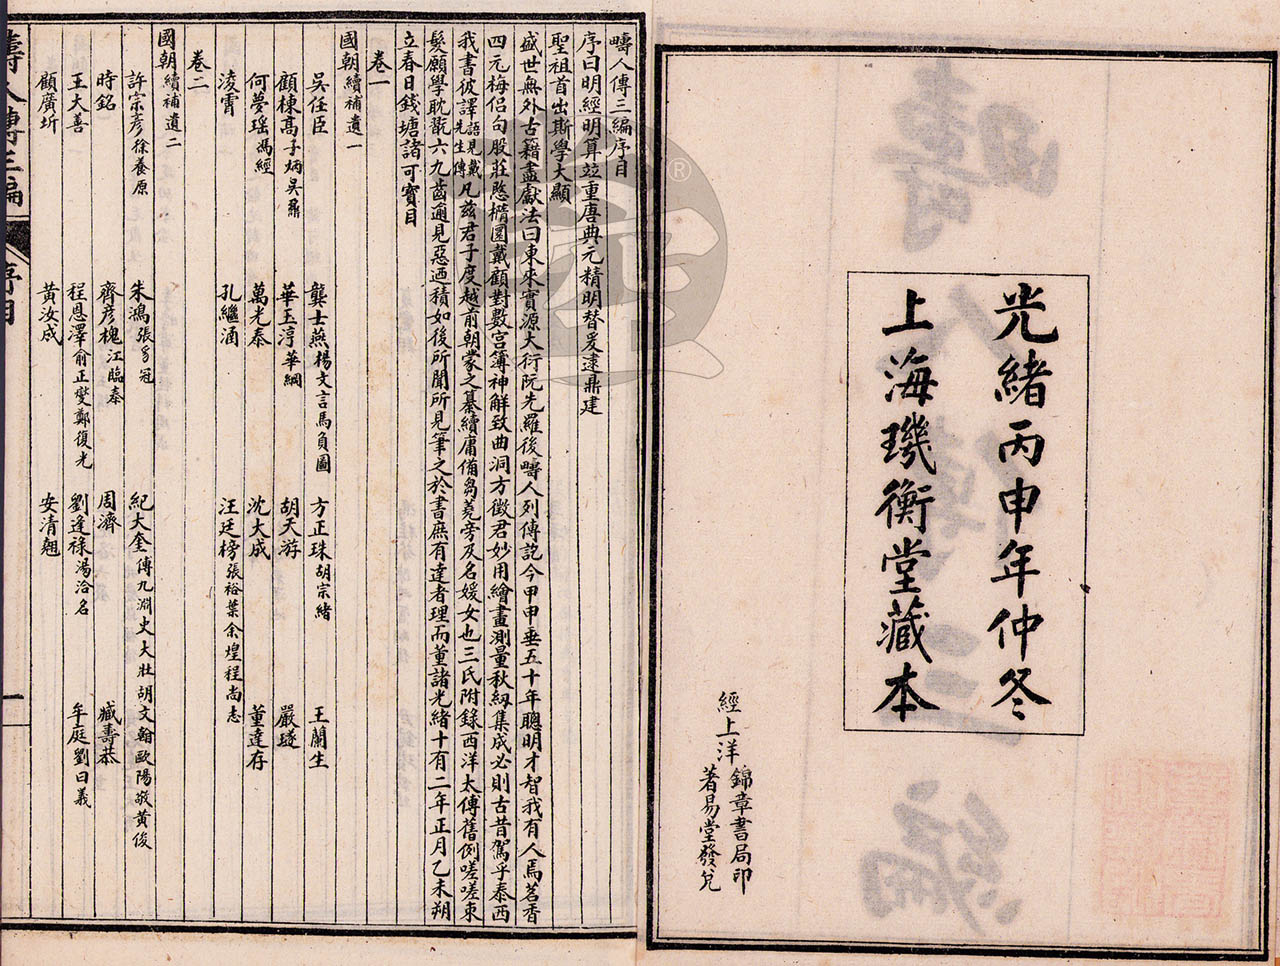 光緒丙申年仲冬
上海璣衡堂藏本
經上洋
錦章書局印
著易堂發兌
疇人傳三編序目
序曰明經明算竝重唐典元精明替爰逮鼎建
聖祖首出斯學大顯
盛世無外古籍盡獻法曰東來實源大衍阮先羅後疇人列傳訖今甲申垂五十年聰明才智我有人焉茗香
四元梅侶句股莊愍橢圜戴顧對數宫簿神解致曲洞方徵君妙用繪畫測量秋紉集成必則古昔駕乎泰西
我書彼譯語見戴先生傳凡茲君子度越前朝蒙之纂續庸備芻蕘旁及名媛女也三氏附錄西洋太傅舊例嗟嗟東
髮願學耽翫六九齒逾見惡迺積如後所聞所見筆之於書庶有達者理而董諸光緒十有二年正月乙未朔
立春日錢塘諸可寶目
卷一
國朝續補遺一
吳任臣 龔士燕楊文言馬負圖 方正珠胡宗緒 王蘭生
顧棟高子炳吳鼐 華玉淳華綱 胡天游 嚴璲
何夢瑤馮經 萬光泰 沈大成 董達存
淩霄 孔繼涵 汪廷榜張裕葉余煌程尚志
卷二
國朝續補遺二
許宗彥徐養原 朱鴻張豸冠 紀大奎傅九淵史大壯胡文翰歐陽敬黃俊
時銘 齊彥槐江臨泰 周濟 臧壽恭
王大善 程恩澤俞正燮鄭復光 劉逢祿湯洽名 牟庭劉曰義
顧廣圻 黃汝成 安清翹
疇人傳三編
序目
一